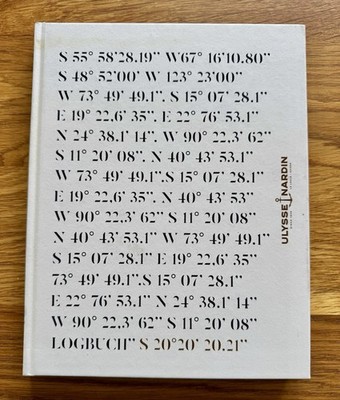 S 55° 58'28.19" W67° 16'10.80"
S 48° 52'00' W 123° 23'00"
W 73° 49' 49.1". S 15° 07' 28.1"
E 19° 22,6' 35". E 22° 76' 53.1"
N 24° 38.1' 14". W 90° 22,3' 62"
S 11° 20' 08". N 40° 43' 53.1"
W 73° 49' 49.1".S 15° 07' 28.1"
E 19° 22,6' 35". N 40° 43' 53"
W 90° 22,3' 62" S 11° 20' 08"
N 40° 43' 53.1" W 73° 49' 49.1"
S 15° 07' 28.1" E 19° 22,6' 35"
73° 49' 49.1".S 15° 07' 28.1"
E 22° 76' 53.1" N 24° 38.1' 14"
W 90° 22,3' 62" S 11° 20' 08"
LOGBUCH" S 20°20' 20.21"
ULYSSE NARDIN